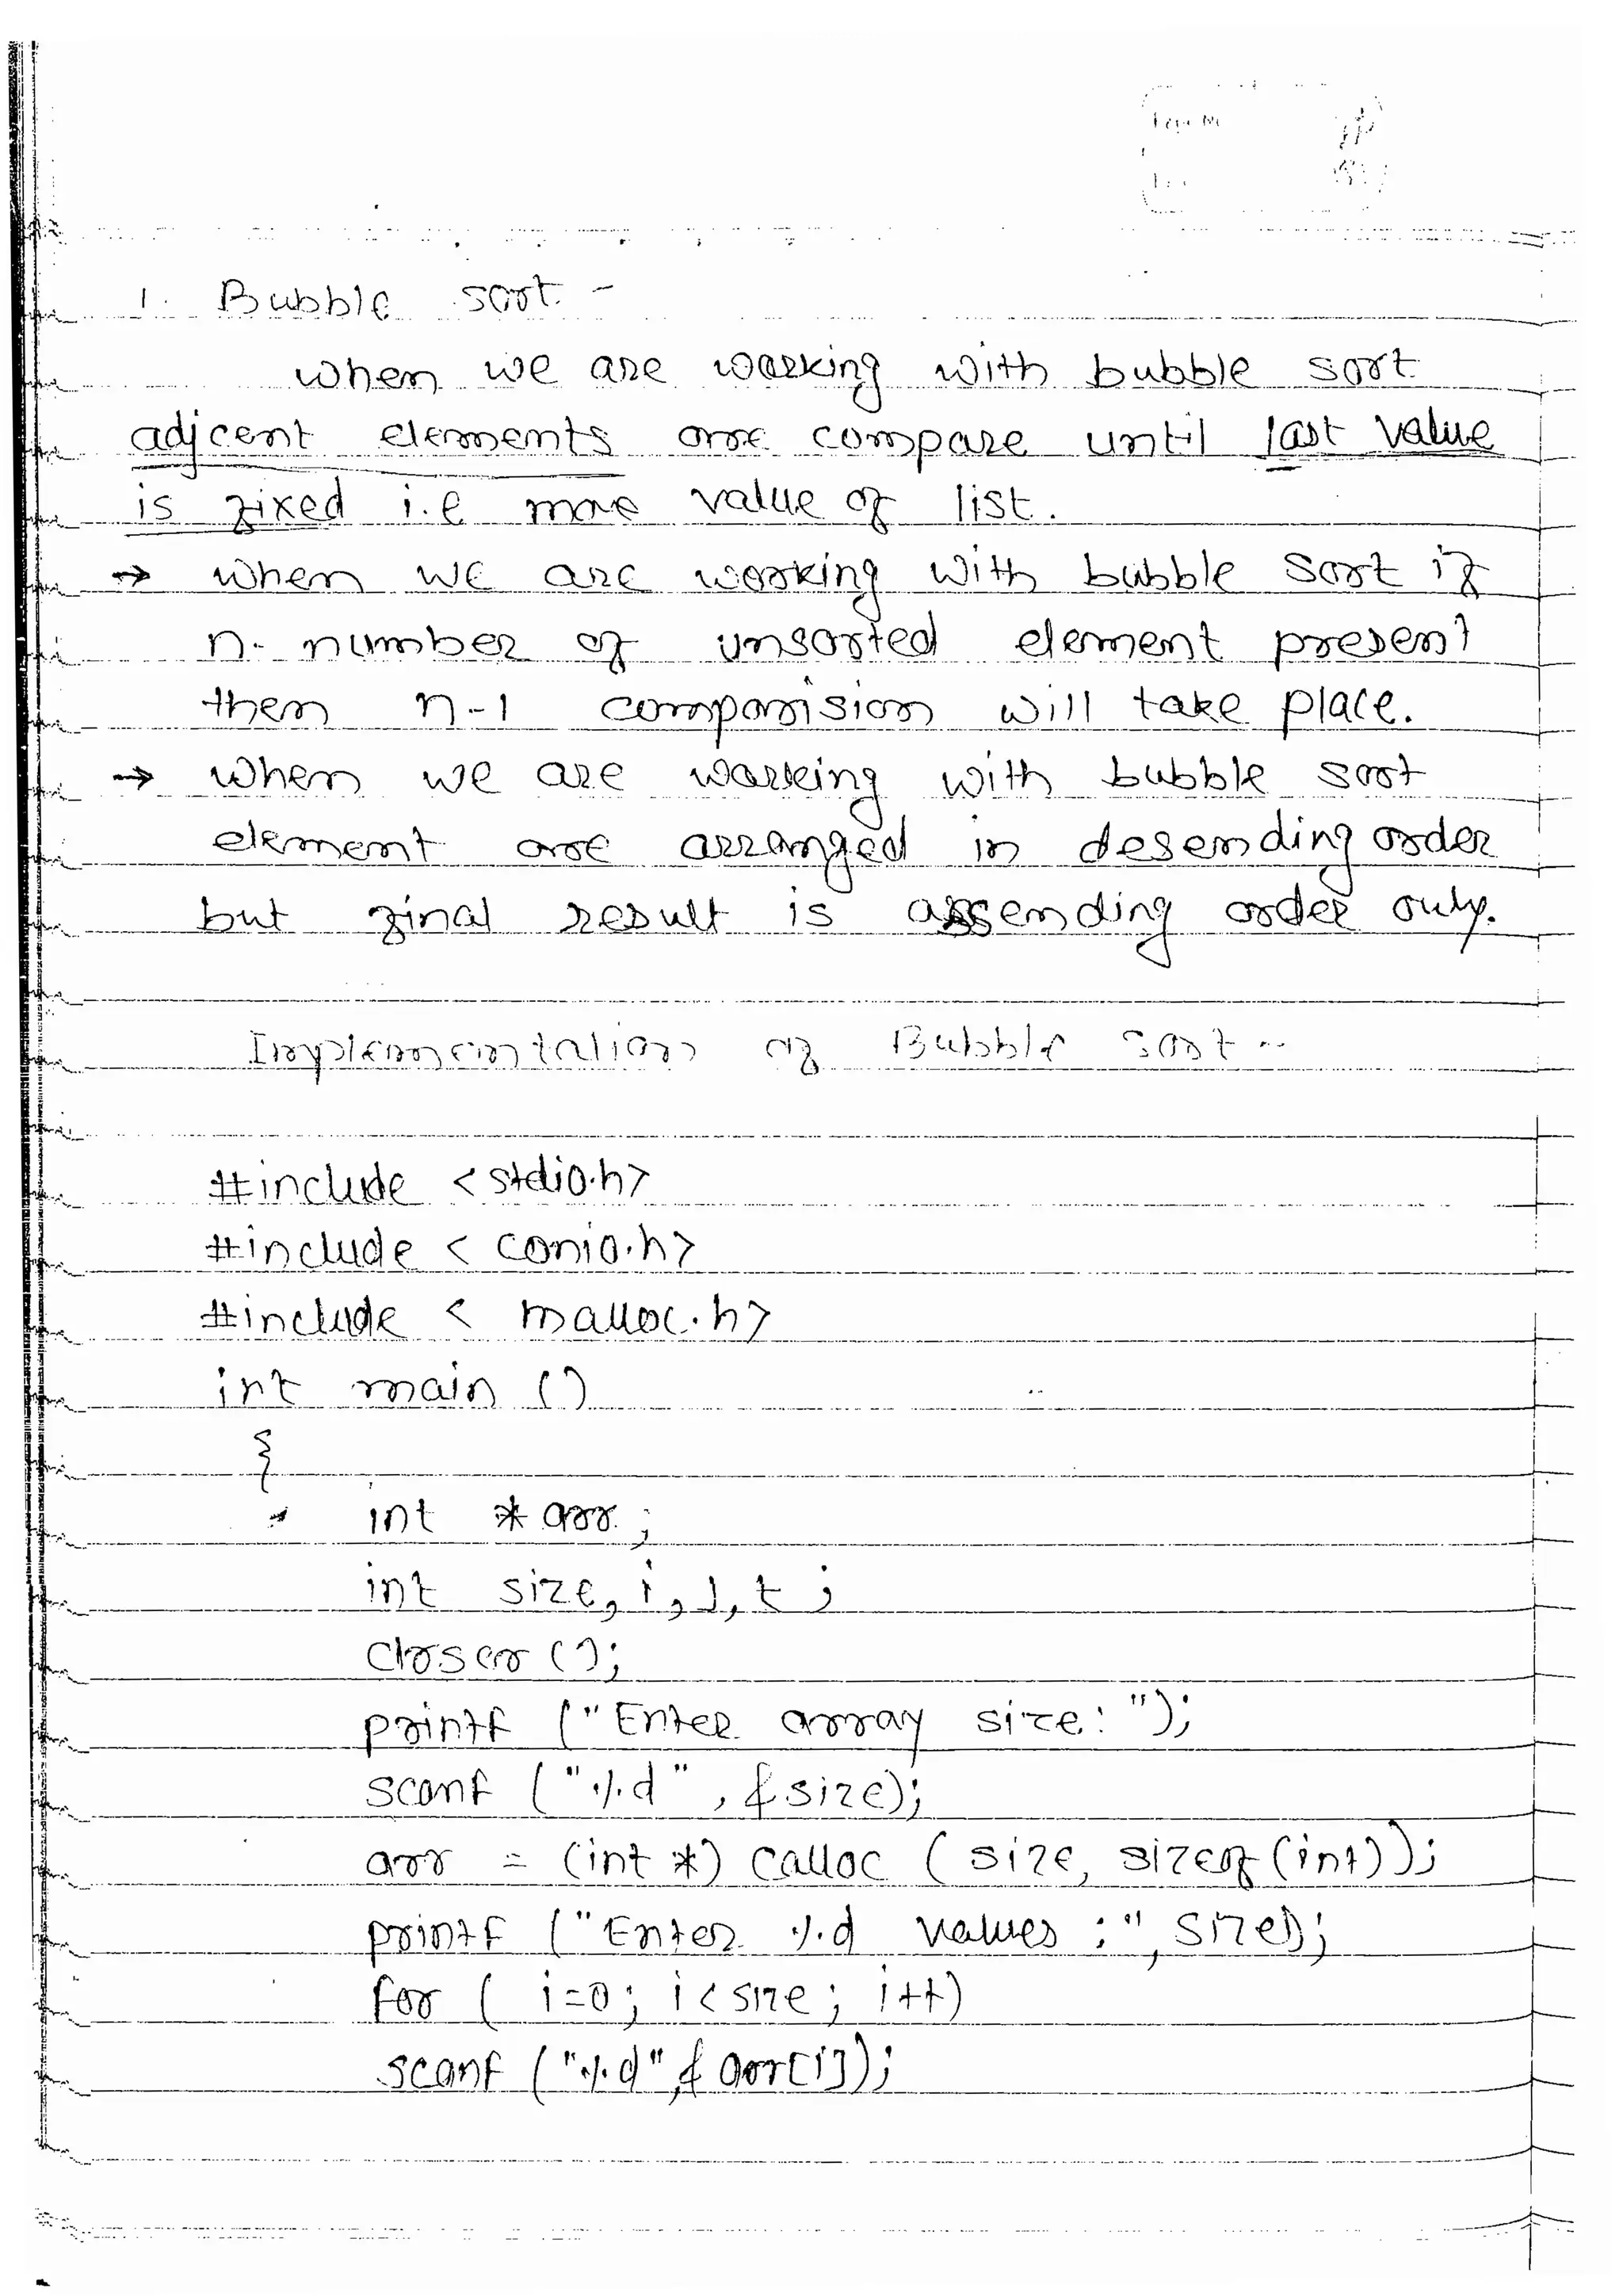 1. Bubble sort -
when we are working with bubble sort
adjcent elements are compare until last value
is fixed i.e max value of list.
→ when we are working with bubble sort if
n- number of unsorted element present
then n-1 comparision will take place.
→ when we are working with bubble sort
element are arranged in desending order
but final result is assending order only.
Implementation of Bubble sort -
#include <stdio.h>
#include < conio.h>
#include < malloc.h>
int main ()
{
int * arr ;
int size, i, j, t ;
clrscr ();
printf (" Enter array size: ");
scanf ( "%d" , &size);
arr = (int *) calloc ( size, sizeof (int));
printf ("Enter %d values :", size);
for ( i=0; i < size; i++)
scanf ("%d", & arr[i]);